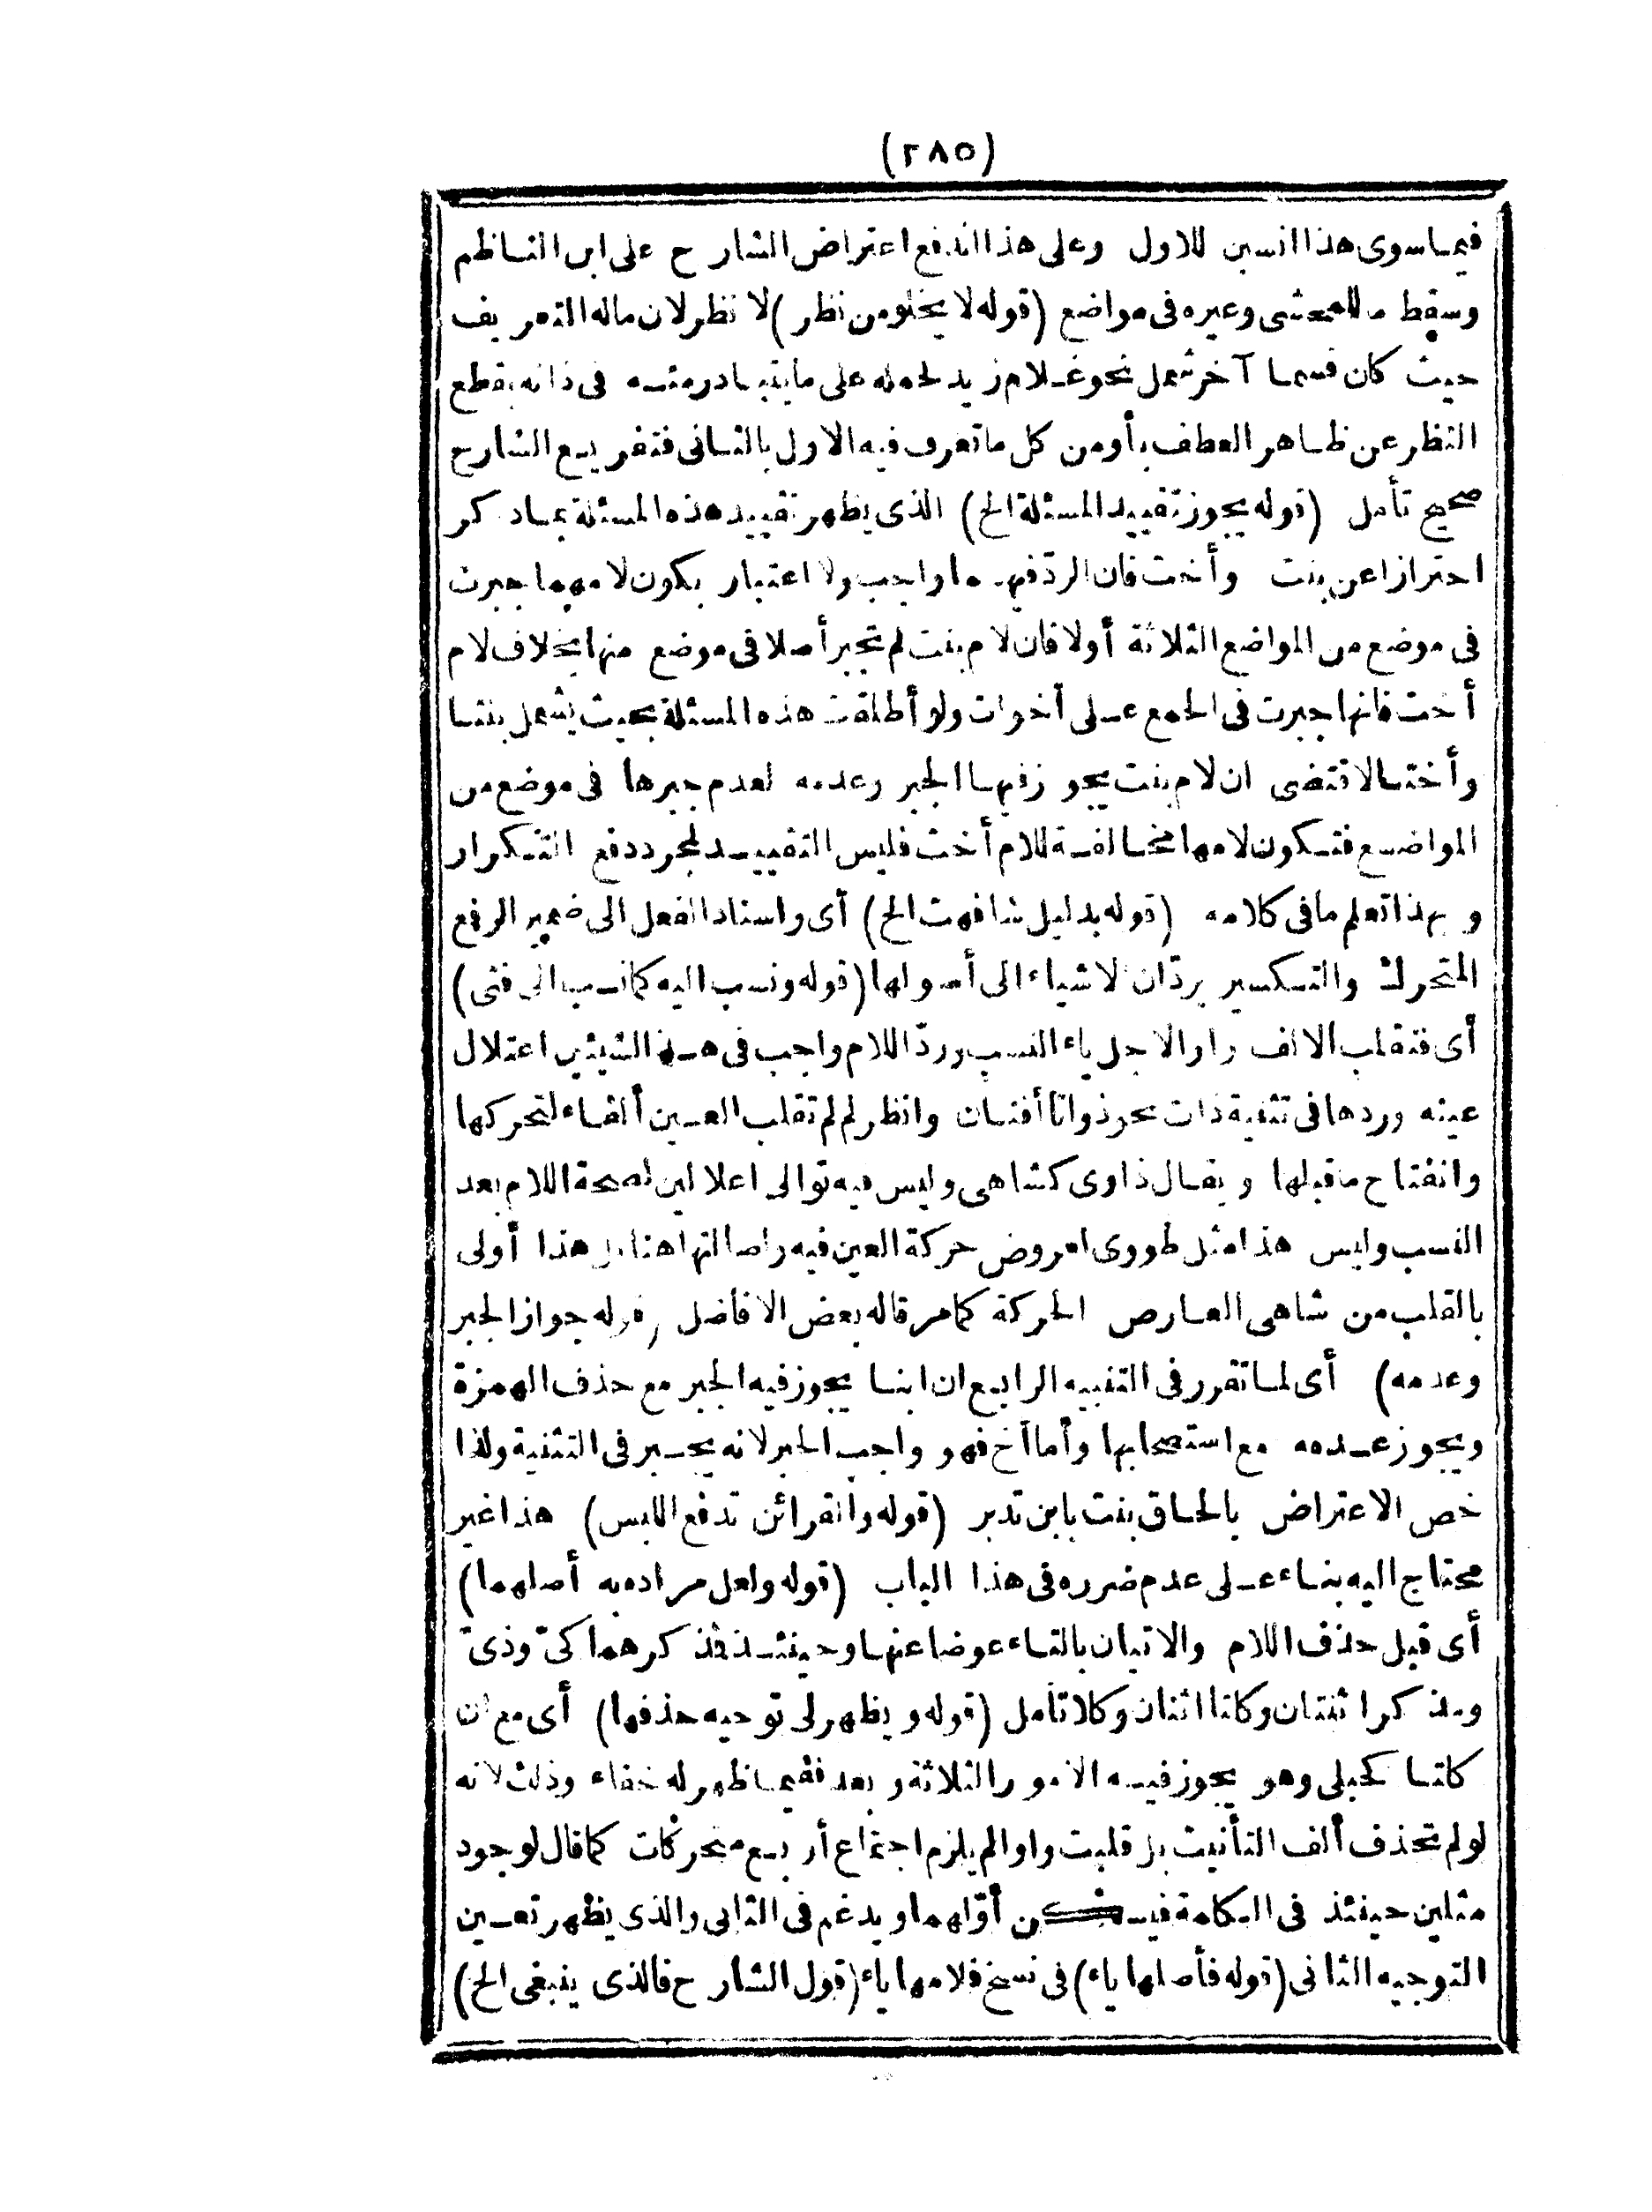 (٢٨٥)
فيما سوى هذا انسبن للاول وعلى هذا اندفع اعتراض الشارح على ابن الناظم
وسقط ما للمحشى وغيره فى مواضع (قوله لا يخلو من نظر) لا نظر لان ماله التعريف
حيث كان قسما آخر شمل نحو غلام زيد لحمله على ما يتبادر منه فى ذاته بقطع
النظر عن ظاهر العطف بأو من كل ما تعرف فيه الاول بالثانى فتفريع الشارح
صحيح تأمل (قوله يجوز تقييد المسئلة الخ) الذى يظهر تقييد هذه المسئلة بما ذكر
احترازا عن بنت وأخت فان الرد فيهما واجب ولا اعتبار بكون لامهما جبرت
فى موضع من المواضع الثلاثة أولا فان لام بنت لم تجبر أصلا فى موضع منها بخلاف لام
أخت فانها جبرت فى الجمع على أخوات ولو أطلقت هذه المسئلة بحيث يشمل بنتا
وأختا لاقتضى ان لام بنت يجوز فيها الجبر وعدمه لعدم جبرها فى موضع من
المواضع فتكون لامها مخالفة للام أخت فليس التقييد لمجرد دفع التكرار
وبهذا تعلم ما فى كلامه (قوله بدليل شافهت الخ) أى واسناد الفعل الى ضمير الرفع
المتحرك والتكسير يردّان الاشياء الى أصولها (قوله ونسب اليه كما نسب الى فتى)
أى فتقلب الالف واوا لاجل ياء النسب وردّ اللام واجب فى هذا لشيئين اعتلال
عينه وردها فى تثنية ذات نحو ذواتا أفنان وانظر لم لم تقلب العين ألفا لتحركها
وانفتاح ما قبلها ويقال ذاوى كشاهى وليس فيه توالى اعلالين لصحة اللام بعد
النسب وليس هذا مثل طووى لعروض حركة العين فيه واصالتها هنا بل هذا أولى
بالقلب من شاهى العارض الحركة كما مر قاله بعض الافاضل (قوله جواز الجبر
وعدمه) أى لما تقرر فى التنبيه الرابع ان ابنا يجوز فيه الجبر مع حذف الهمزة
ويجوز عدمه مع استصحابها وأما أخ فهو واجب الجبر لانه يجبر فى التثنية ولذا
خص الاعتراض بالحاق بنت بابن تدبر (قوله والقرائن تدفع اللبس) هذا غير
محتاج اليه بناء على عدم ضرره فى هذا الباب (قوله ولعل مراده به أصلهما)
أى قبل حذف اللام والاتيان بالتاء عوضا عنها وحينئذ فمذكرهما كىّ وذىّ
ومذكر اثنتان وكلتا اثنان وكلا تأمل (قوله ويظهر لى توجيه حذفها) أى مع ان
كلتا كحبلى وهو يجوز فيه الامور الثلاثة وبعد ففيما ظهر له خفاء وذلك لانه
لو لم تحذف ألف التأنيث بل قلبت واوا لم يلزم اجتماع أربع متحركات كما قال لوجود
مثلين حينئذ فى الكلمة فيسكن أوّلهما ويدغم فى الثانى والذى يظهر تعين
التوجيه الثانى (قوله فأصلها ياء) فى نسخ فلامها ياء (قول الشارح فالذى ينبغى الخ)